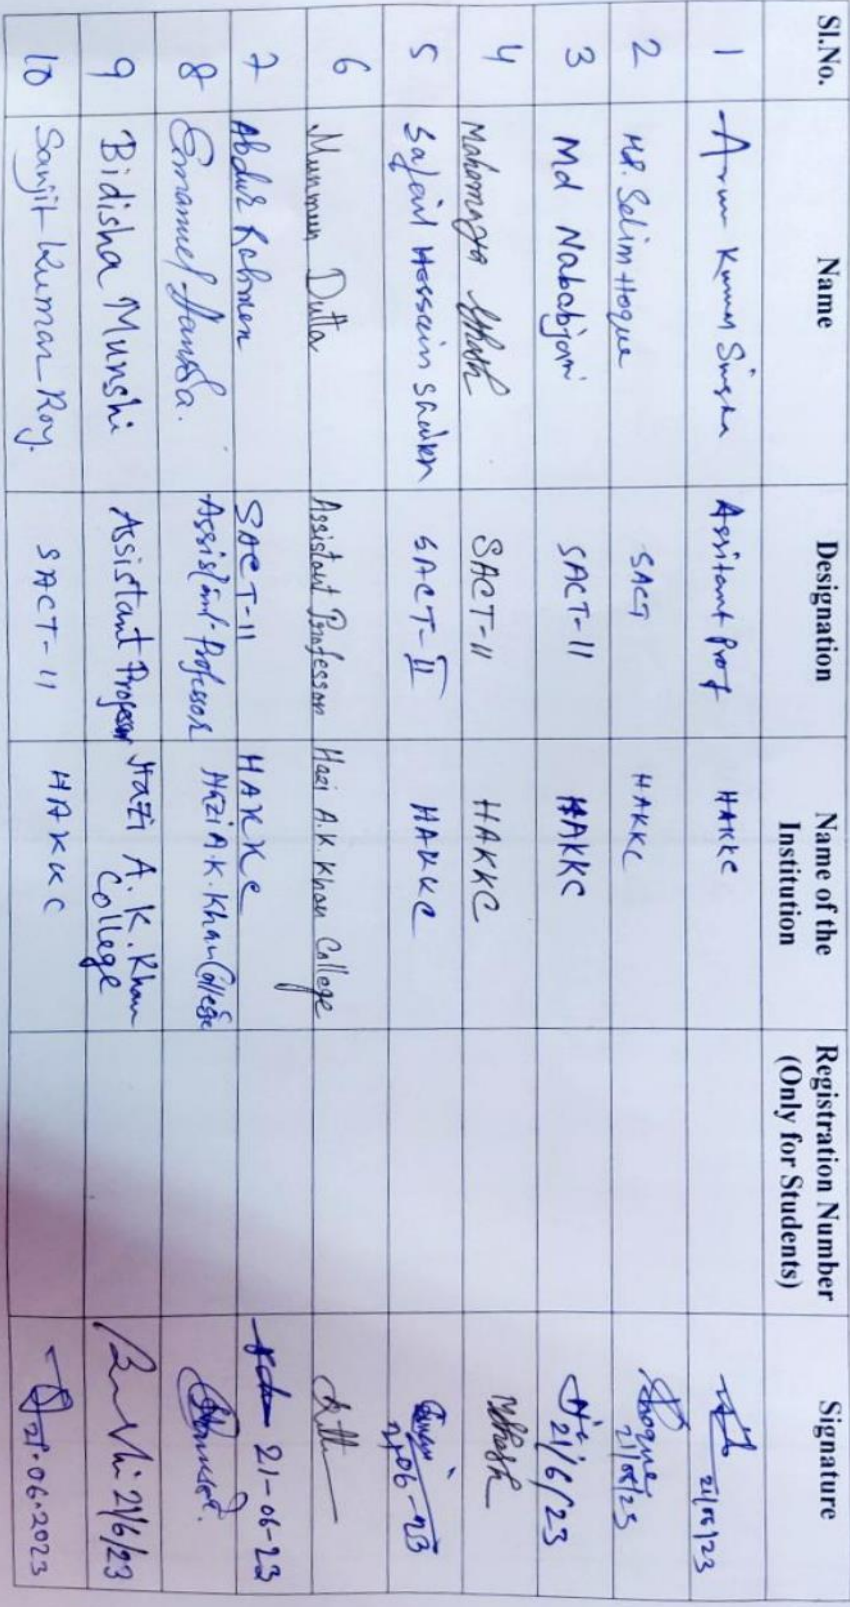 Sl.No. Name Designation Name of the Institution Registration Number (Only for Students) Signature
1 Arun Kumar Singha Assitant Prof HAKKC 21/06/23
2 Md. Selim Hoque SACT HAKKC Shoque 21/06/23
3 Md Nababjani SACT-11 HAKKC 21/6/23
4 Mahamaya Ghosh SACT-11 HAKKC MGhosh
5 Safeul Hossain Shaikh SACT-II HAKKC 21/06-23
6 Munmun Dutta Assistant Professor Hazi A.K. Khan College
7 Abdur Rahman SACT-11 HAKKC 21-06-23
8 Emanuel Hansda. Assistant Professor Hazi A.K. Khan College
9 Bidisha Munshi Assistant Professor Hazi A. K. Khan College 21/6/23
10 Sanjit Kumar Roy. SACT-11 HAKKC 21.06.2023